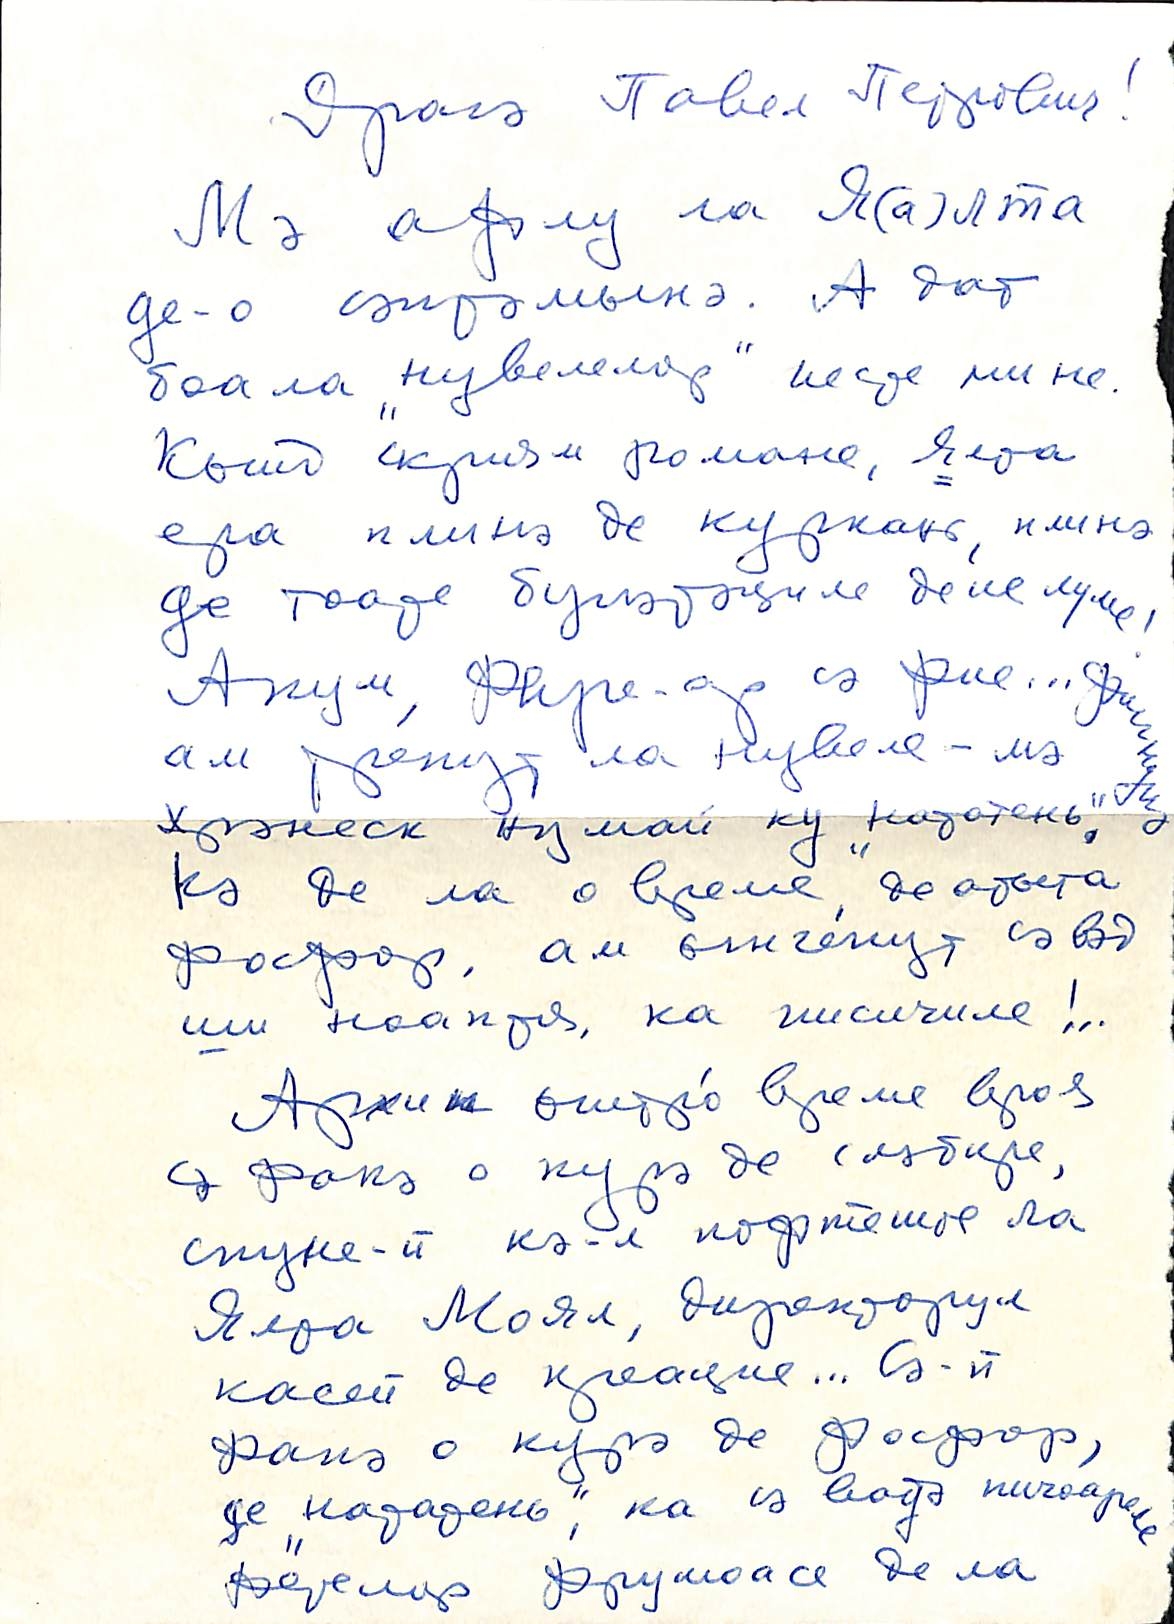 Драгэ Павел Петрович!
Мэ афлу ла Я(а)лта
де-о сэптэмынэ. А дат
боала „нувелелор" песте мине.
Кынд скриям романе, Ялта
ера плинэ де куркань, плинэ
де тоате бунэтэциле де пе луме!
Акум, фире-ар сэ фие...
ам трекут ла нувеле – мэ
хрэнеск нумай ку „нототень",
Кэ де ла о време, де атыта
фосфор, ам ынчепут сэ вэд
ши ноаптя, ка писичиле!..
Архип ынтр'о време вроя
сэ факэ о курэ де слэбире,
спуне-й кэ-л пофтеште ла
Ялта Моял, директорул
касей де креацие... Сэ-й
факэ о курэ де фосфор,
де „нототень", ка сэ вадэ пичоареле
фетелор фрумоасе де ла